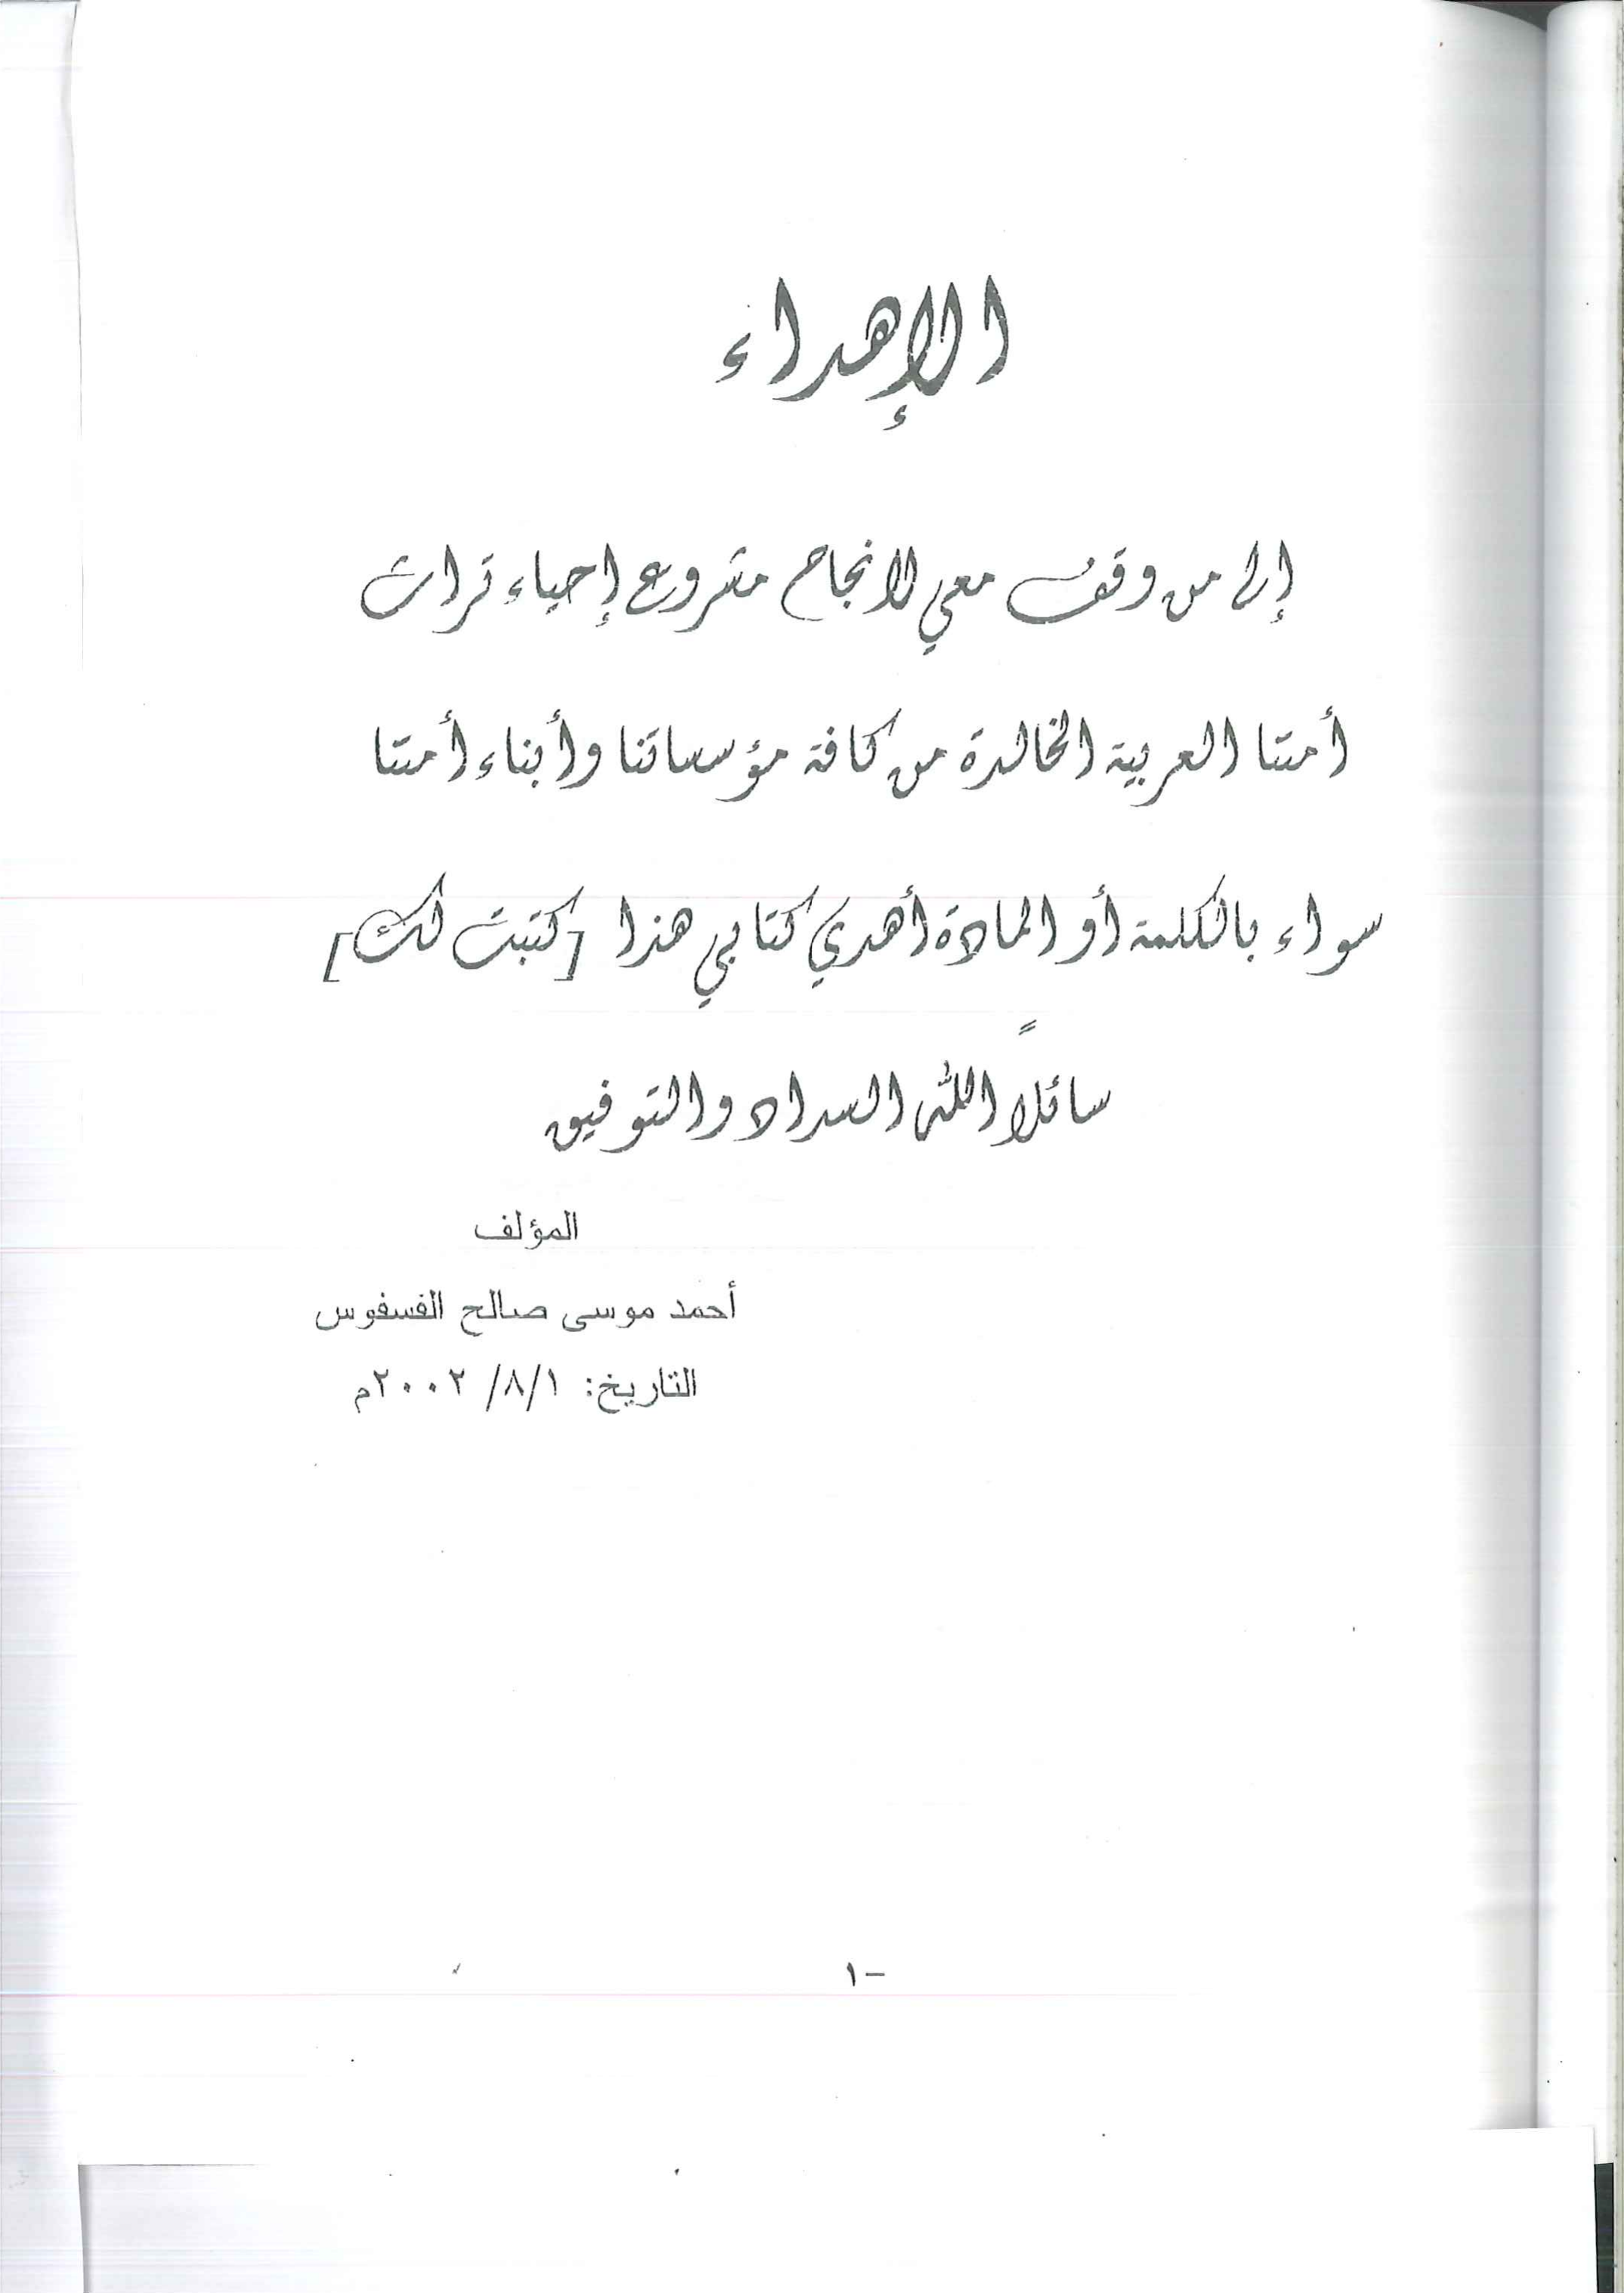 الإهداء
إلى من وقف معي لانجاح مشروع إحياء تراث
أمتنا العربية الخالدة من كافة مؤسساتنا وأبناء أمتنا
سواء بالكلمة أو المادة أهدي كتابي هذا [كتبت لك]
سائلاً الله السداد والتوفيق
المؤلف
أحمد موسى صالح الفسفوس
التاريخ: ١/٨/ ٢٠٠٢م
١-